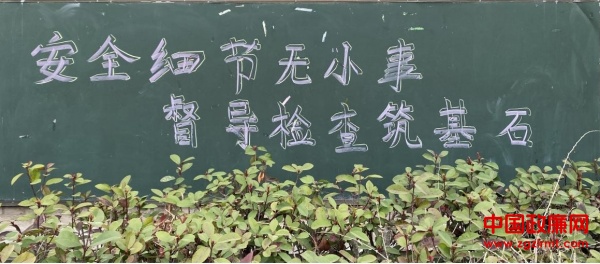 安全细节无小事
督导检查筑基石
中国政廉网
www.zgzlmtt.com